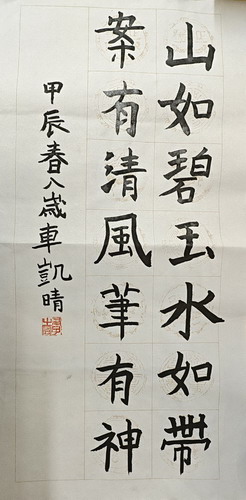 山如碧玉水如帶
案有清風筆有神
甲辰春八歲車凱晴